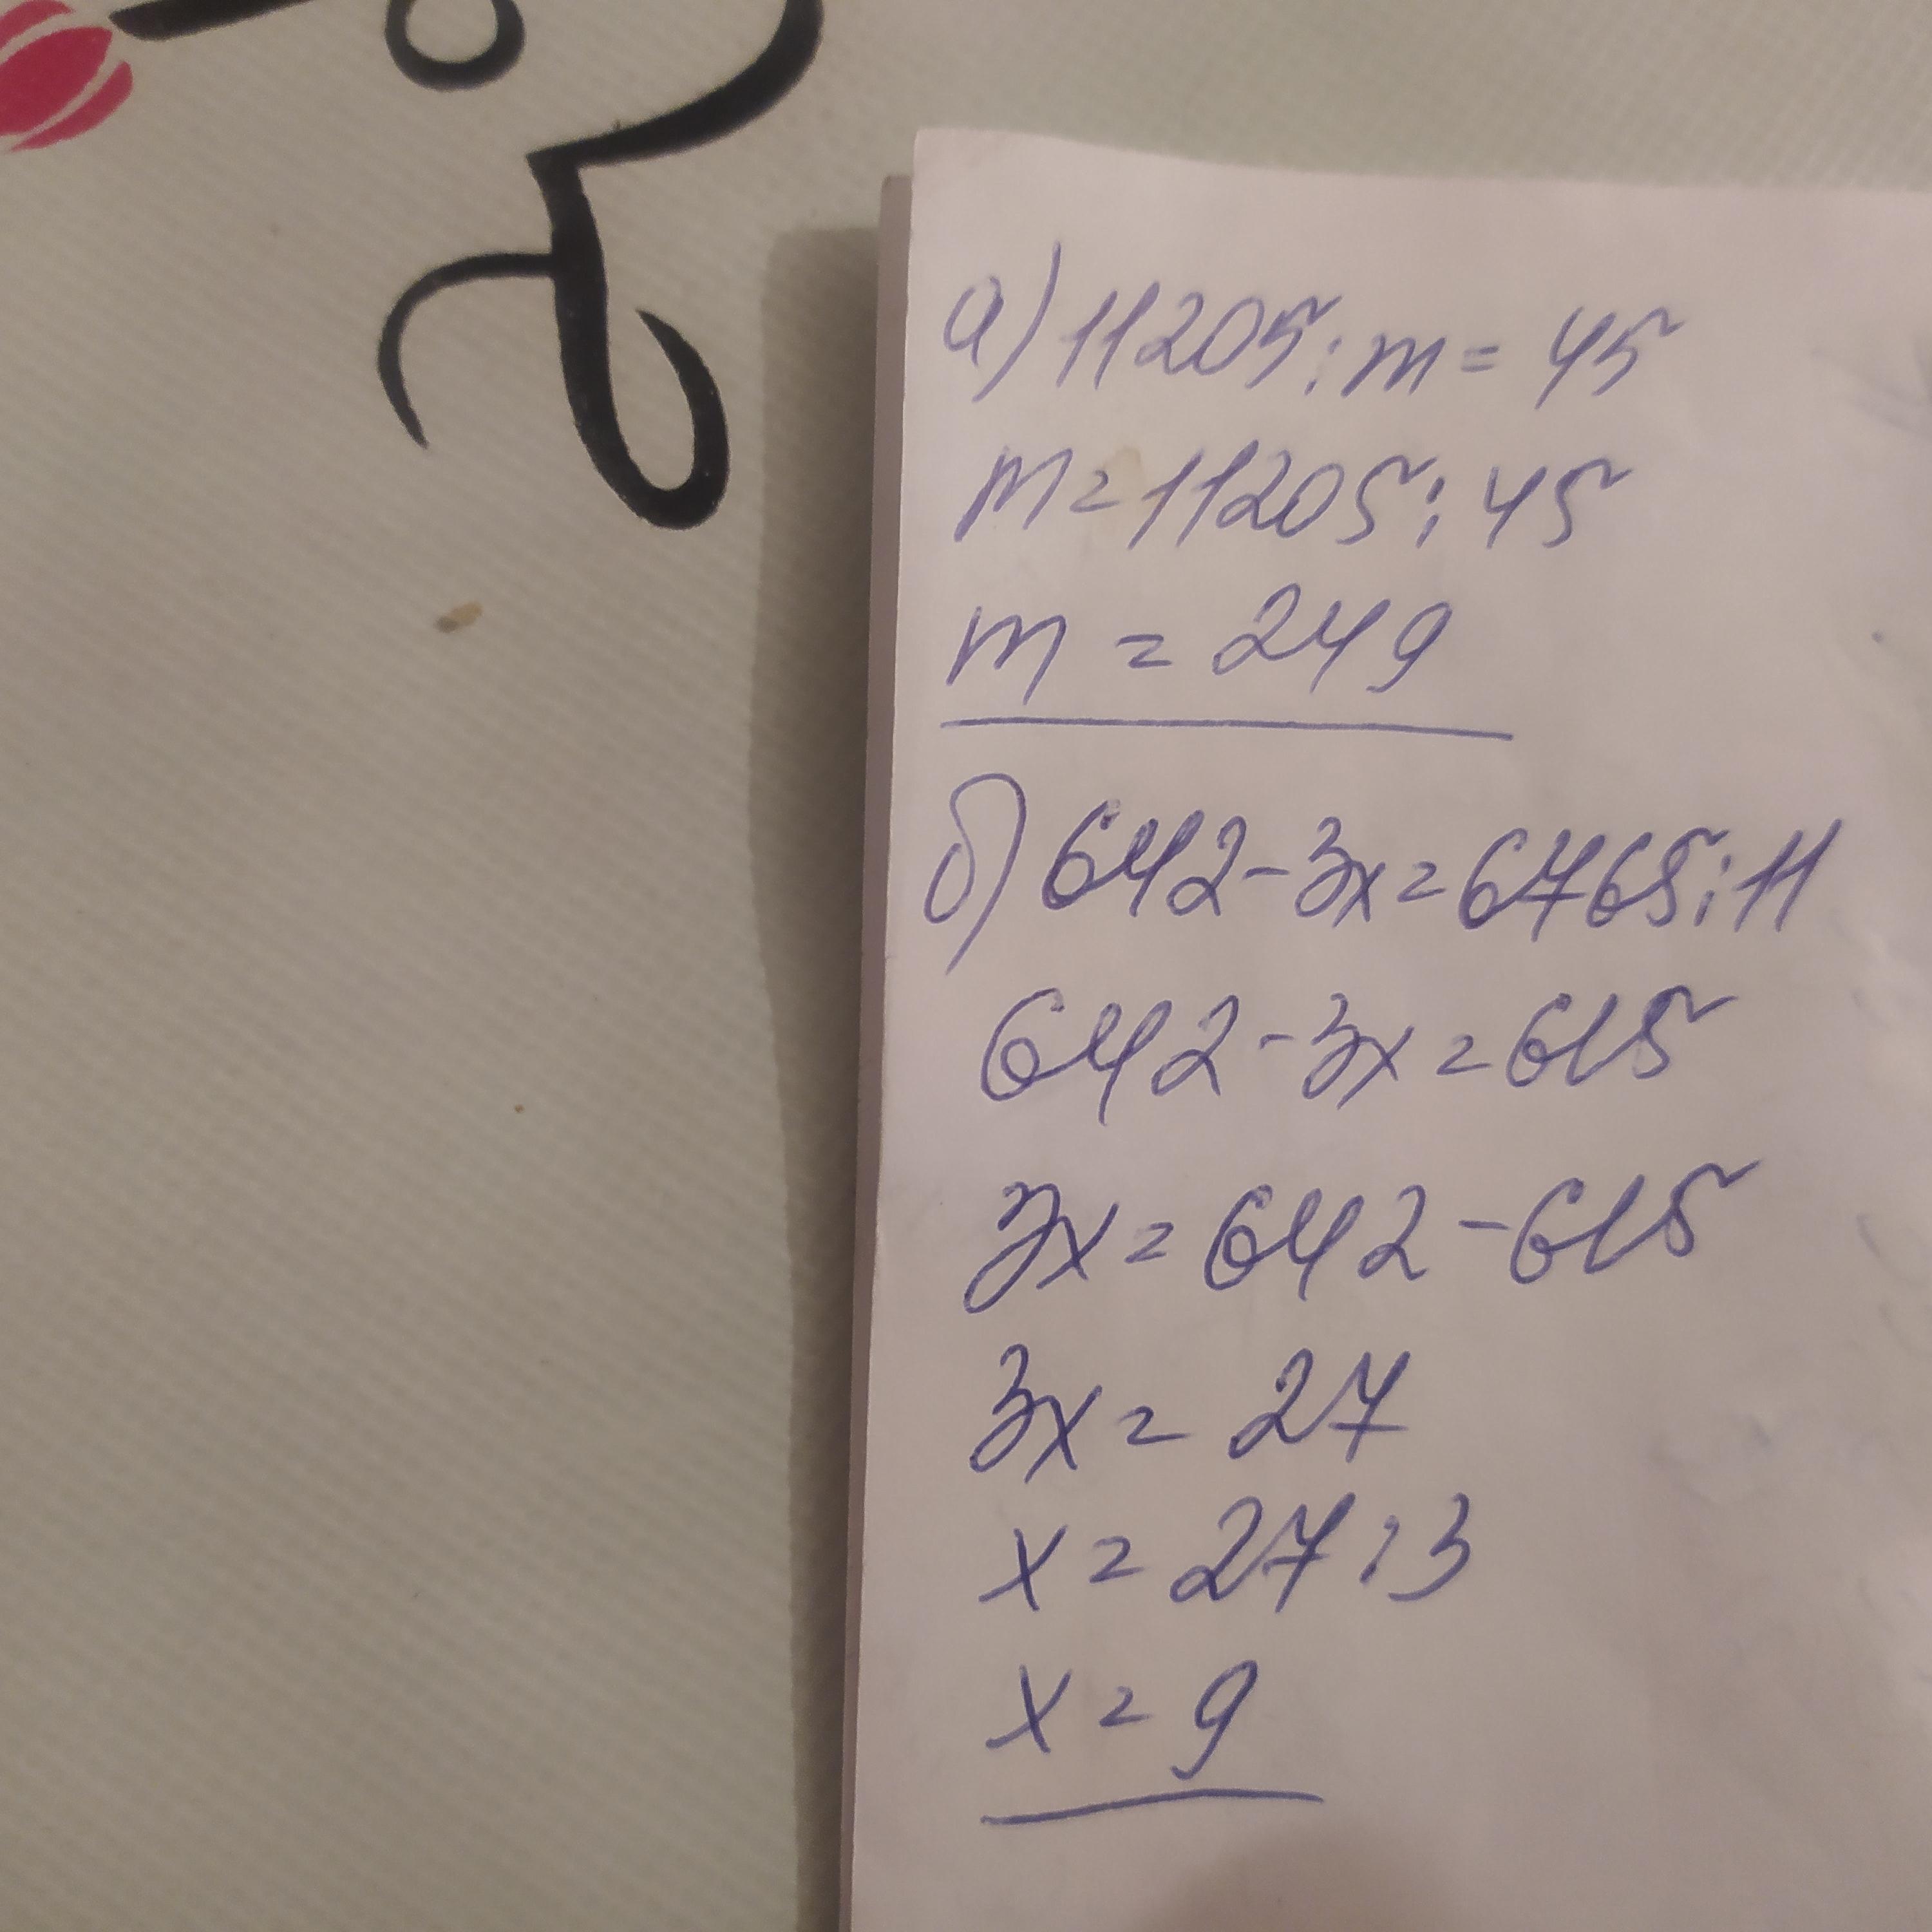 а) 11205 : m = 45
m = 11205 : 45
m = 249
б) 642 - 3x = 6765 : 11
642 - 3x = 615
3x = 642 - 615
3x = 27
x = 27 : 3
x = 9